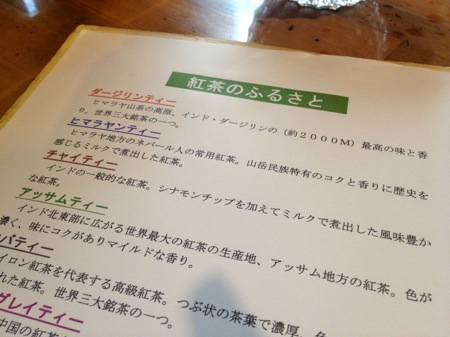 紅茶のふるさと
ダージリンティー
ヒマラヤ山系の高原、インド・ダージリンの（約２０００Ｍ）最高の味と香
り。世界三大銘茶の一つ。
ヒマラヤンティー
ヒマラヤ地方のネパール人の常用紅茶。山岳民族特有のコクと香りに歴史を
感じるミルクで煮出した紅茶。
チャイティー
インドの一般的な紅茶。シナモンチップを加えてミルクで煮出した風味豊か
な紅茶。
アッサムティー
インド北東部に広がる世界最大の紅茶の生産地、アッサム地方の紅茶。色が
濃く、味にコクがありマイルドな香り。
パティー
イロン紅茶を代表する高級紅茶。つぶ状の茶葉で濃厚。色
れた紅茶。世界三大銘茶の一つ。
グレイティー
中国の紅茶